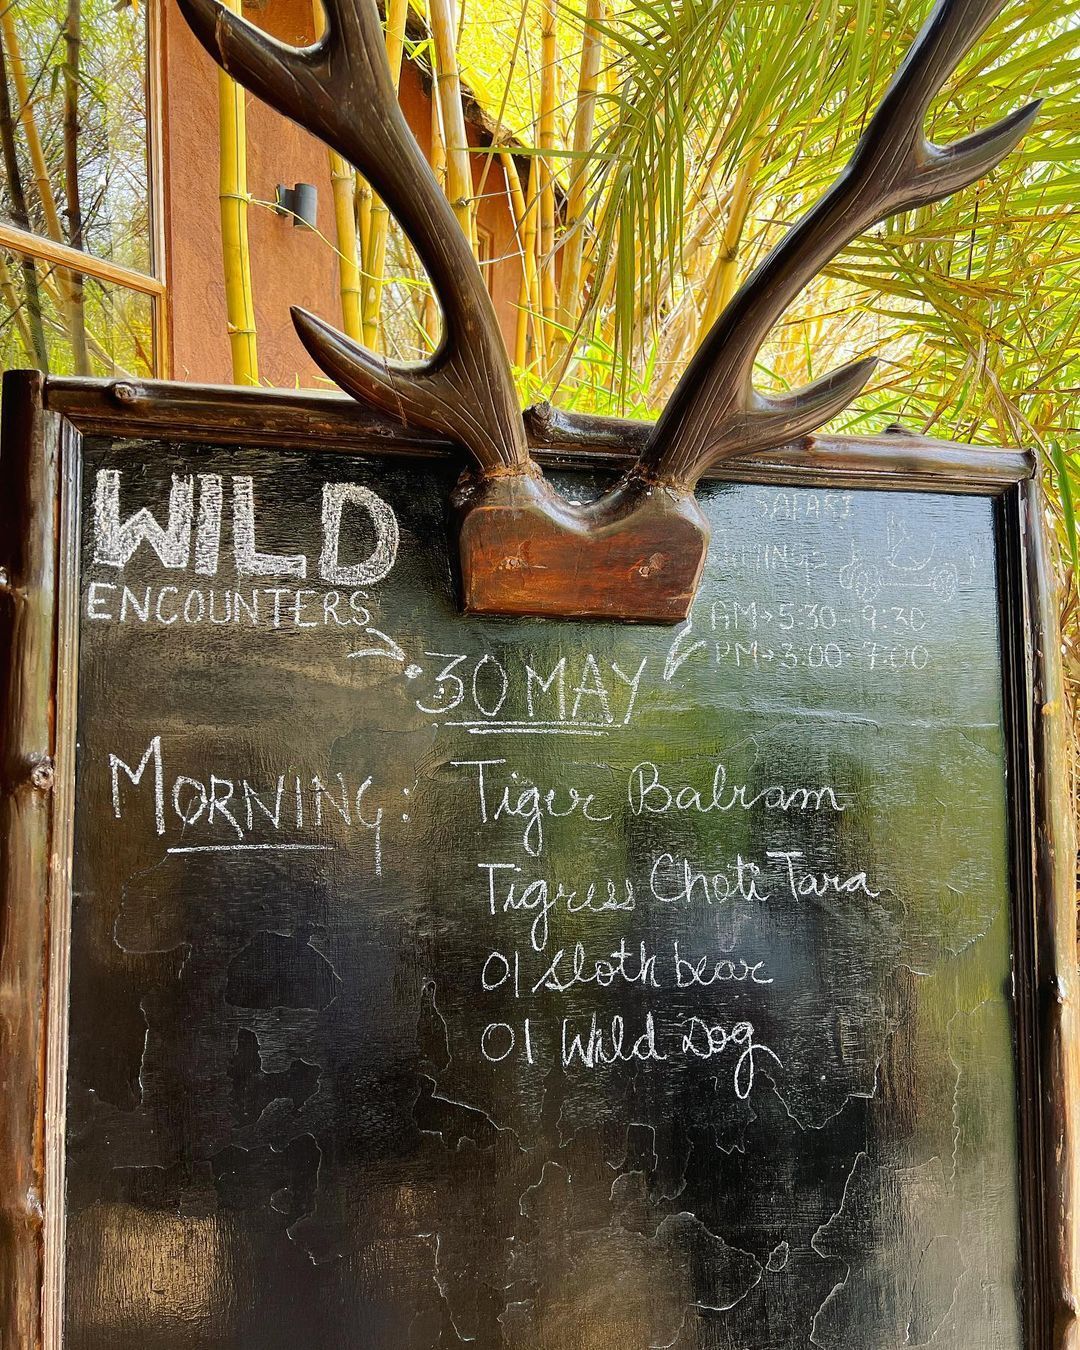 WILD
ENCOUNTERS
SAFARI
TIMING:
AM→5:30-9:30
PM→3:00-7:00
30 MAY
MORNING:
Tiger Balram
Tigress Choti Tara
01 Sloth bear
01 Wild Dog